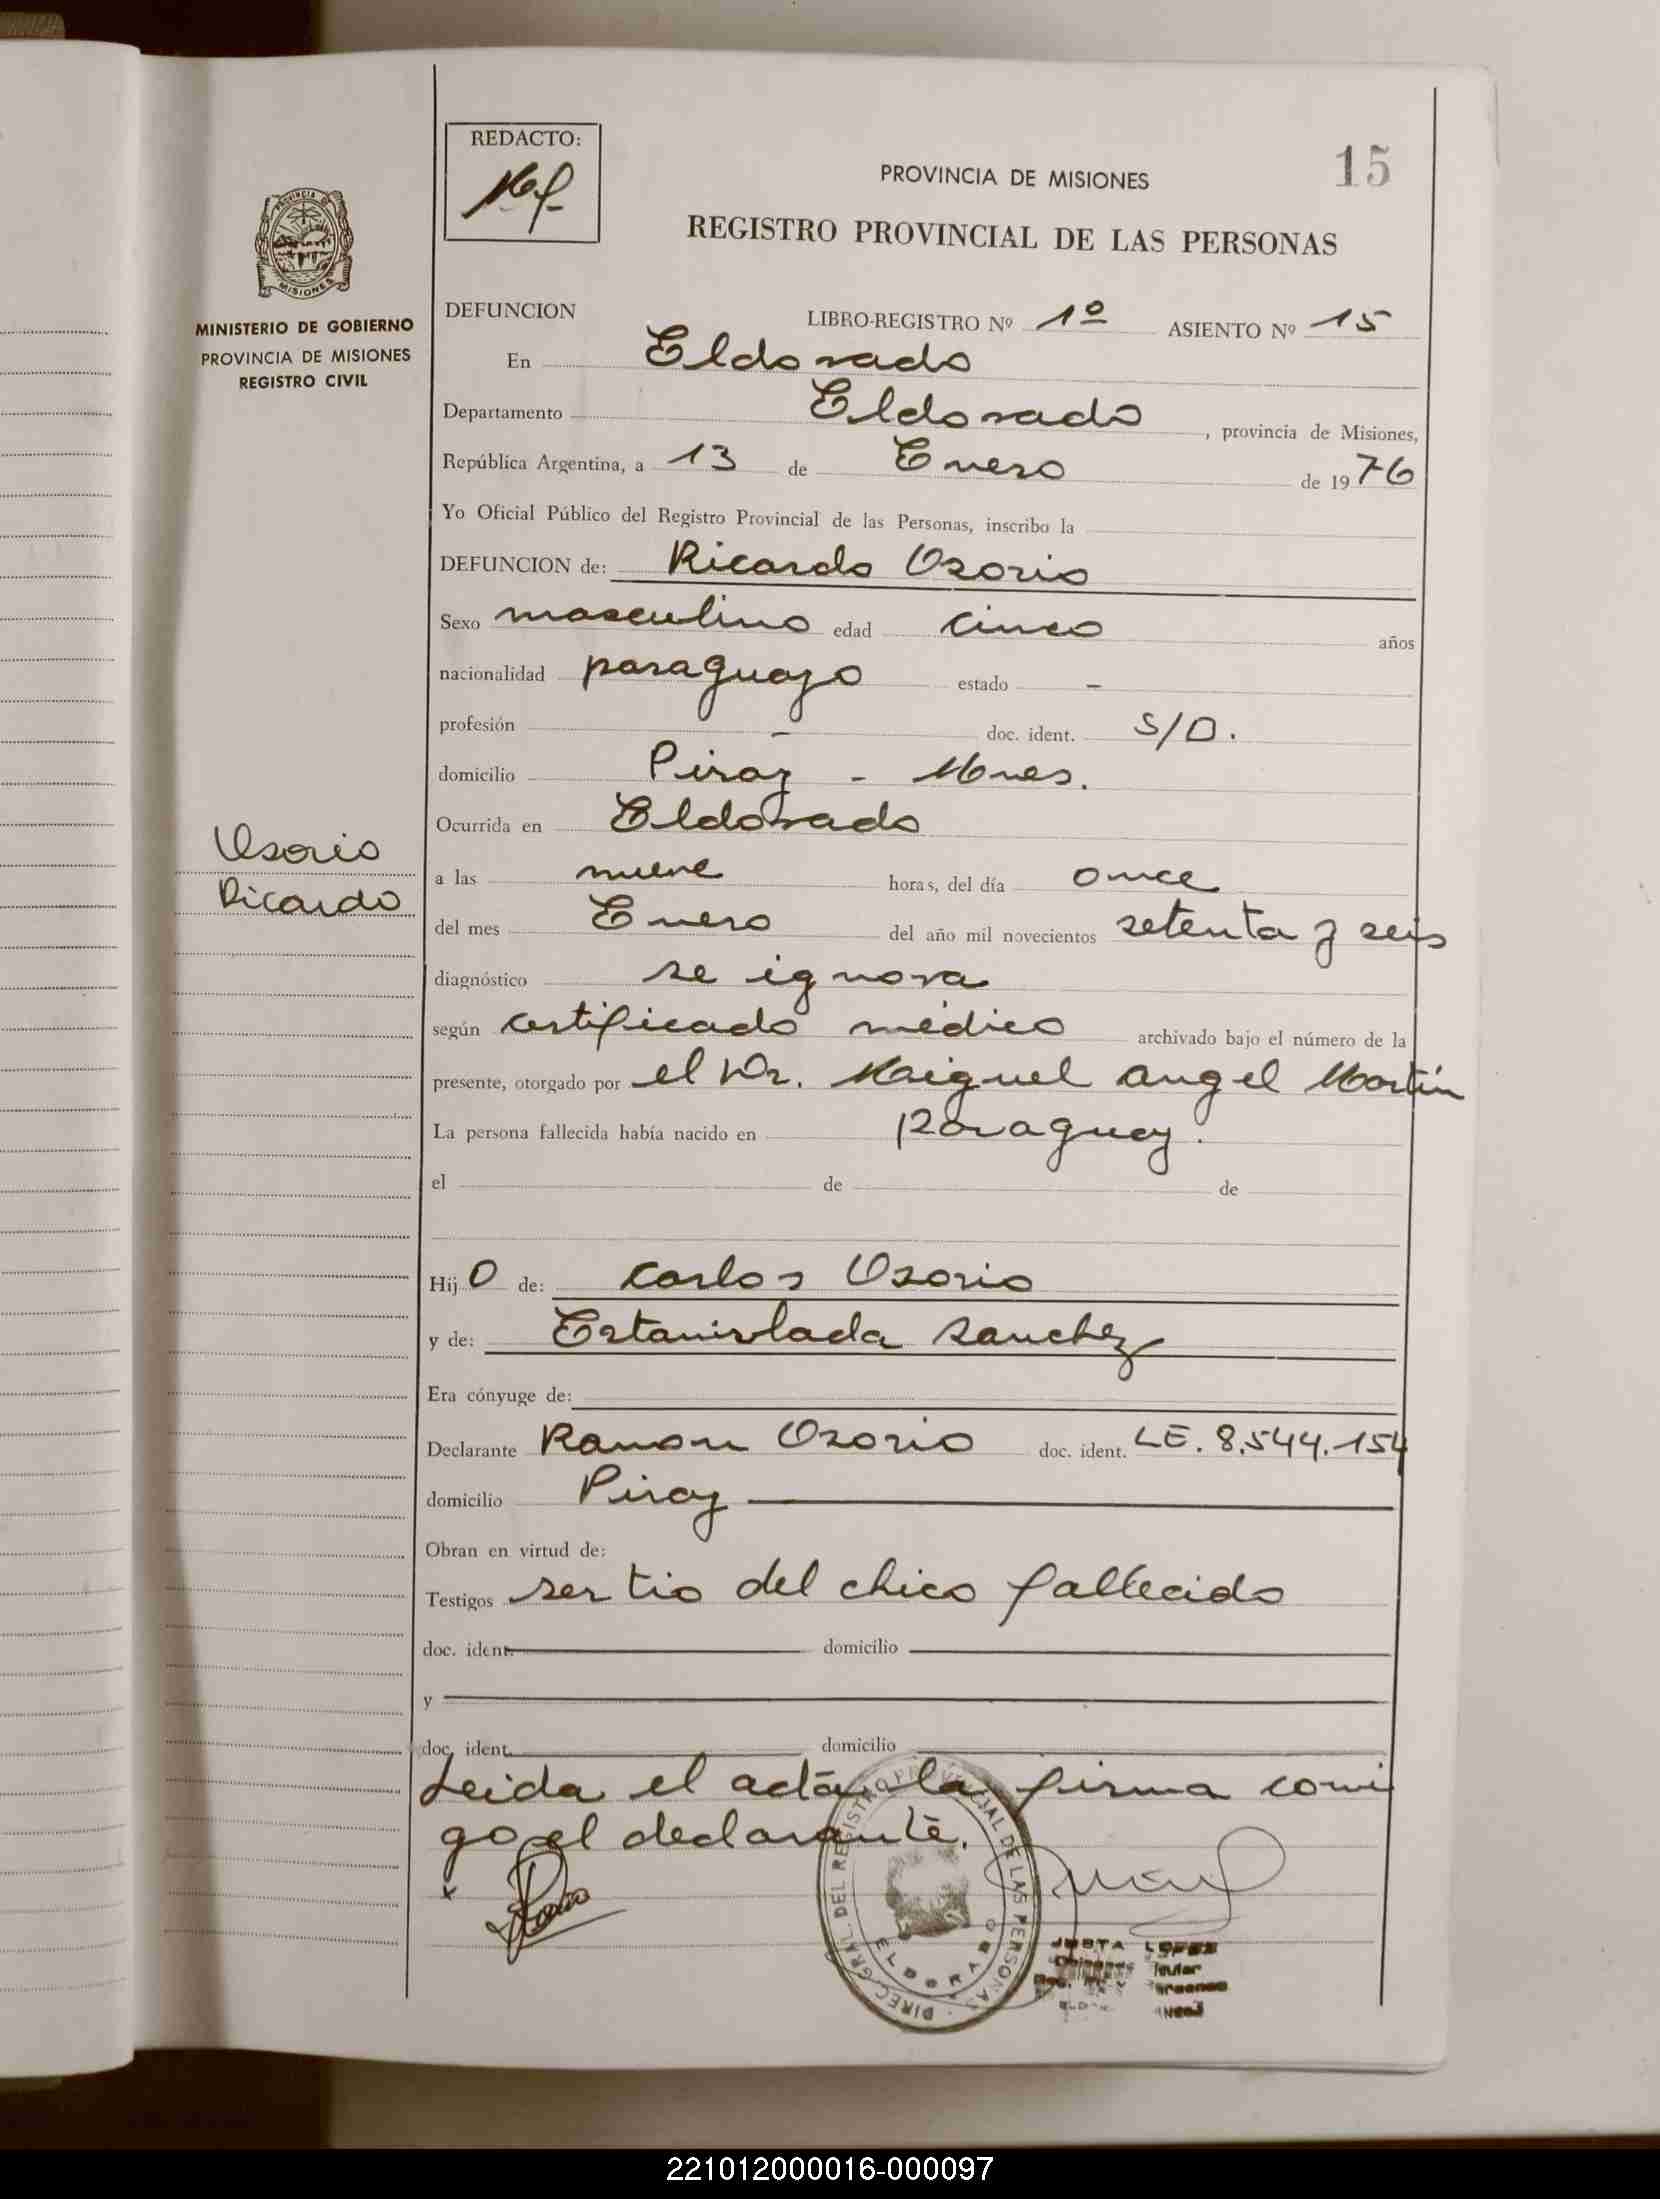 REDACTO:
15
PROVINCIA DE MISIONES
REGISTRO PROVINCIAL DE LAS PERSONAS
PROVINCIA DE
MISIONES
MINISTERIO DE GOBIERNO
PROVINCIA DE MISIONES
REGISTRO CIVIL
DEFUNCION LIBRO-REGISTRO Nº 1º ASIENTO Nº 15
En Eldorado
Departamento Eldorado, provincia de Misiones,
República Argentina, a 13 de Enero de 1976
Yo Oficial Público del Registro Provincial de las Personas, inscribo la
DEFUNCION de: Ricardo Osorio
Sexo masculino edad cinco años
nacionalidad paraguayo estado -
profesión - doc. ident. S/D.
domicilio Piray - Mnes.
Ocurrida en Eldorado
Osorio
Ricardo
a las nueve horas, del día once
del mes Enero del año mil novecientos setenta y seis
diagnóstico se ignora
según certificado médico archivado bajo el número de la
presente, otorgado por el Dr. Miguel angel Martín
La persona fallecida había nacido en Paraguay.
el de de
Hijo de: Carlos Osorio
y de: Estanislada Sanchez
Era cónyuge de:
Declarante Ramon Osorio doc. ident. LE. 8.544.154
domicilio Piray
Obran en virtud de:
Testigos ser tio del chico fallecido
doc. ident. domicilio
y
doc. ident. domicilio
Leida el acta, la firma conmi
go el declarante.
x
DIREC. GRAL. DEL REGISTRO PROVINCIAL DE LAS PERSONAS
ELDORADO
JUSTA LOPEZ
221012000016-000097